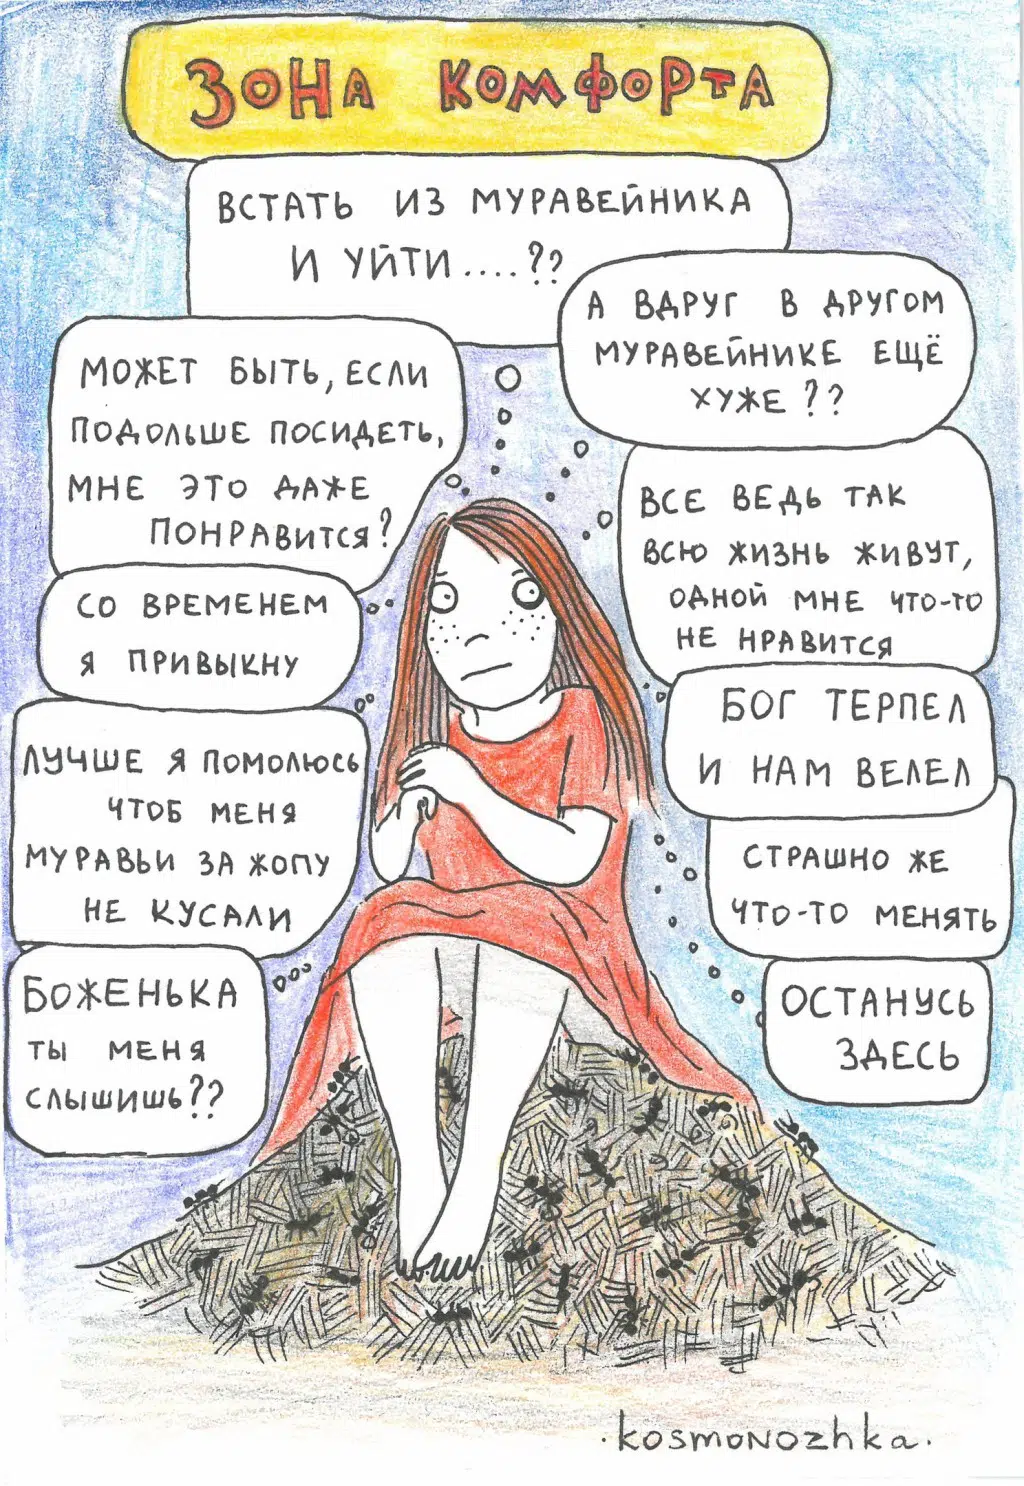 ЗОНА КОМФОРТА
ВСТАТЬ ИЗ МУРАВЕЙНИКА
И УЙТИ....??
А ВДРУГ В ДРУГОМ
МУРАВЕЙНИКЕ ЕЩЁ
ХУЖЕ??
МОЖЕТ БЫТЬ, ЕСЛИ
ПОДОЛЬШЕ ПОСИДЕТЬ,
МНЕ ЭТО ДАЖЕ
ПОНРАВИТСЯ?
ВСЕ ВЕДЬ ТАК
ВСЮ ЖИЗНЬ ЖИВУТ,
ОДНОЙ МНЕ ЧТО-ТО
НЕ НРАВИТСЯ
СО ВРЕМЕНЕМ
Я ПРИВЫКНУ
БОГ ТЕРПЕЛ
И НАМ ВЕЛЕЛ
ЛУЧШЕ Я ПОМОЛЮСЬ
ЧТОБ МЕНЯ
МУРАВЬИ ЗА ЖОПУ
НЕ КУСАЛИ
СТРАШНО ЖЕ
ЧТО-ТО МЕНЯТЬ
БОЖЕНЬКА
ТЫ МЕНЯ
СЛЫШИШЬ??
ОСТАНУСЬ
ЗДЕСЬ
.kosmonozhka.